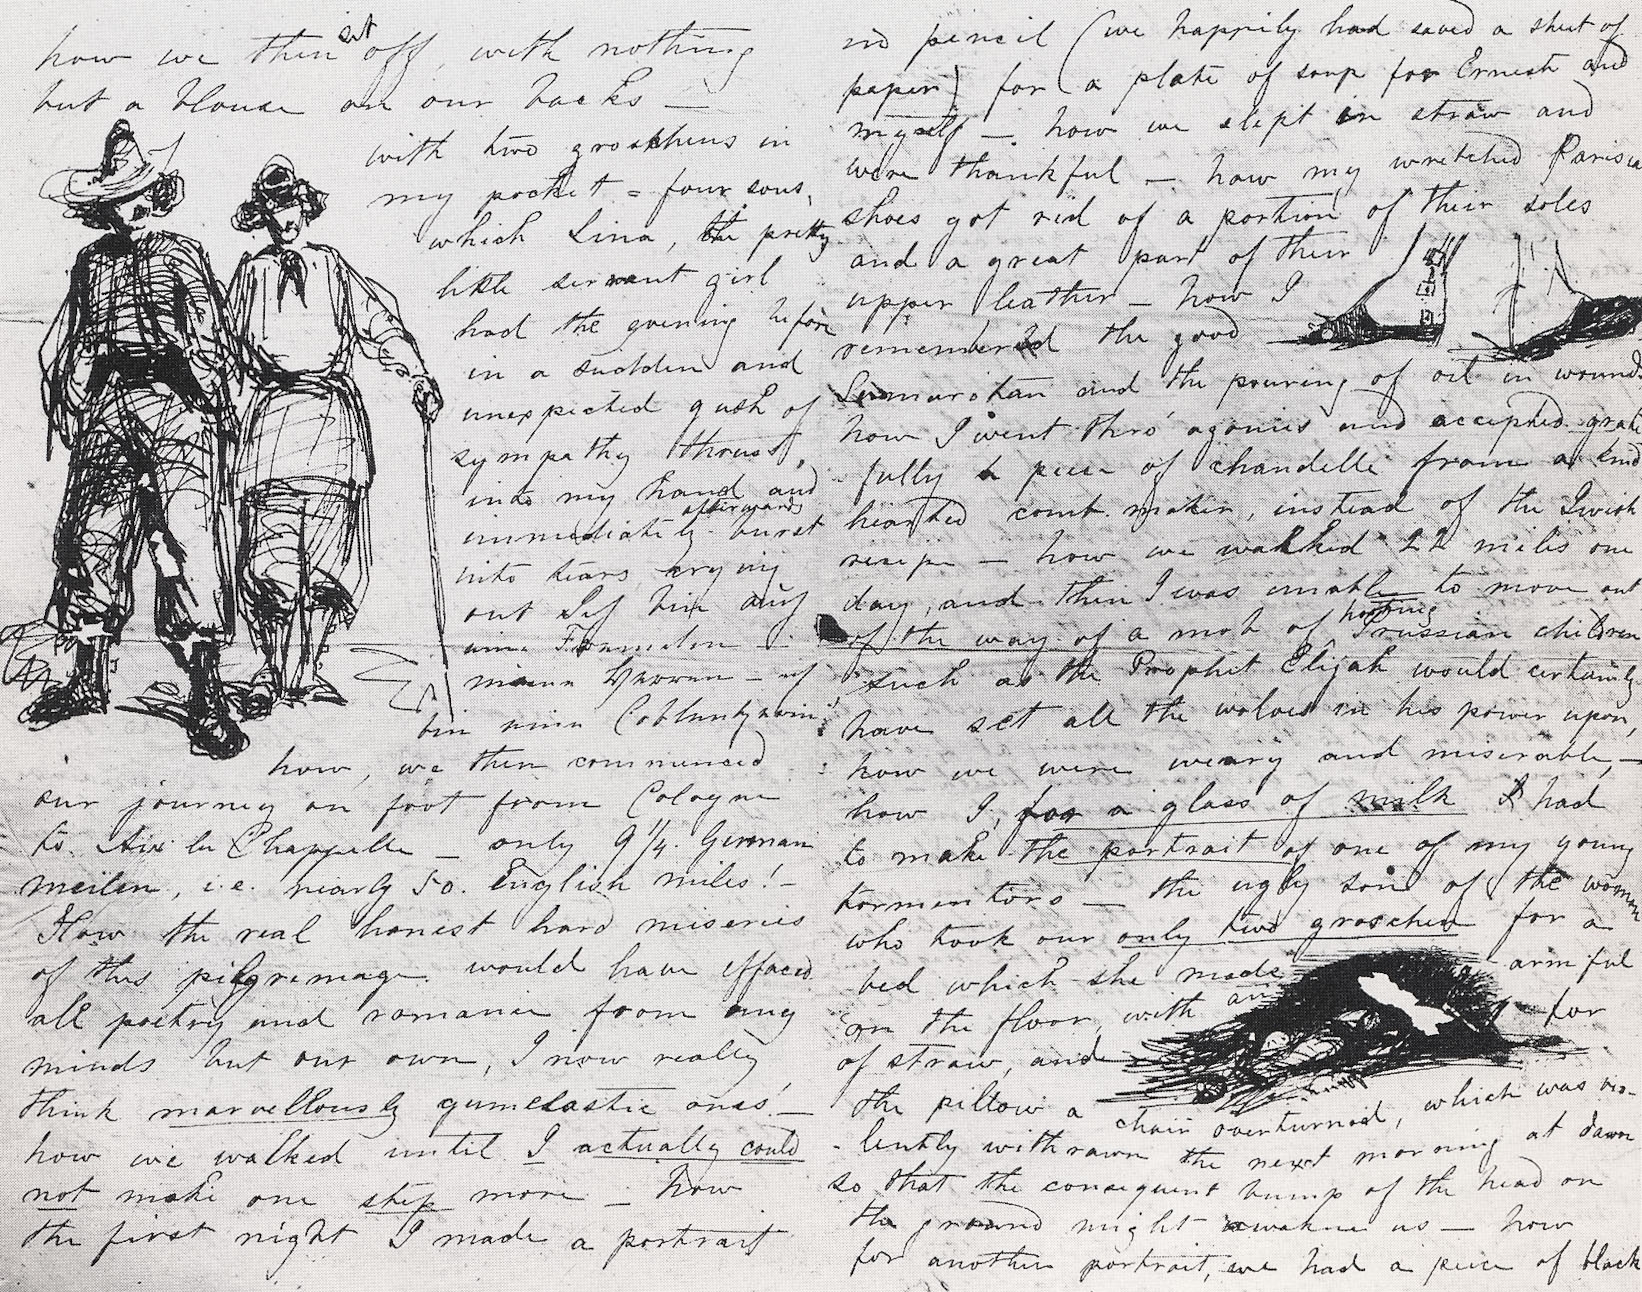 how we then set off, with nothing
but a blouse on our backs —
with two groschens in
my pocket = four sous,
which Lina, the pretty
little servant girl
had the evening before
in a sudden and
unexpected gush of
sympathy thrust,
into my hand and
immediately afterwards burst
into tears crying
out
bin
how, we then commenced
our journey on foot from Cologne
to Aix la Chappelle — only 9 1/4. German
meilen, i.e. nearly 50. English miles! —
How the real honest hard miseries
of this pilgrimage would have effaced
all poetry and romance from any
minds but our own, I now really
think marvellously gumelastic ones! —
how we walked until I actually could
not make one step more — how
the first night I made a portrait
in pencil (we happily had saved a sheet of
paper) for a plate of soup for Ernest and
myself — how we slept in straw and
were thankful — how my wretched Parisian
shoes got rid of a portion of their soles
and a great part of their
upper leather — how I
remembered the good
Samaritan and the pouring of oil in wounds
how I went thro' agonies and accepted grate
fully a piece of chandelle from a kind
hearted comb maker, instead of the Jewish
recipe — how we walked 22 miles one
day, and then I was unable to move out
of the way of a mob of hooting Prussian children
such as the Prophet Elijah would certainly
have set all the wolves in his power upon,
how we were weary and miserable, —
how I, for a glass of milk I had
to make the portrait of one of my young
tormentors — the ugly son of the woman
who took our only two groschen for a
bed which she made
on the floor, with an armful
of straw, and for
the pillow a chair overturned, which was vio-
-lently withrawn the next morning at dawn
so that the consequent bump of the head on
the ground might awaken us — how
for another portrait, we had a piece of black